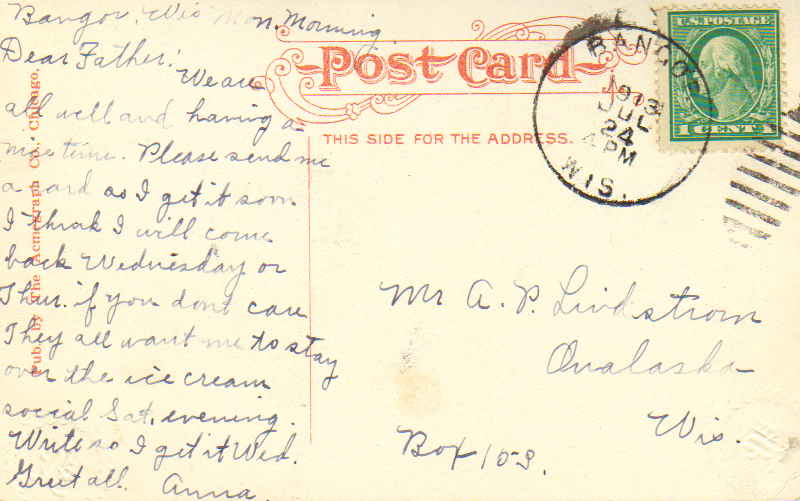 Bangor, Wis Mon. Morning
Dear Father!
We are
all well and having a
nice time. Please send me
a card so I get it soon
I think I will come
back Wednesday or
Thur. if you dont care
They all want me to stay
over the ice cream
social Sat. evening.
Write so I get it Wed.
Greet all. Anna
Pub. by The Acmegraph Co., Chicago.
Post Card
THIS SIDE FOR THE ADDRESS.
BANGOR
1913
JUL
24
4 PM
WIS.
U.S. POSTAGE
1 CENT 1
Mr A. P. Lindstrom
Onalaska
Wis.
Box 103.